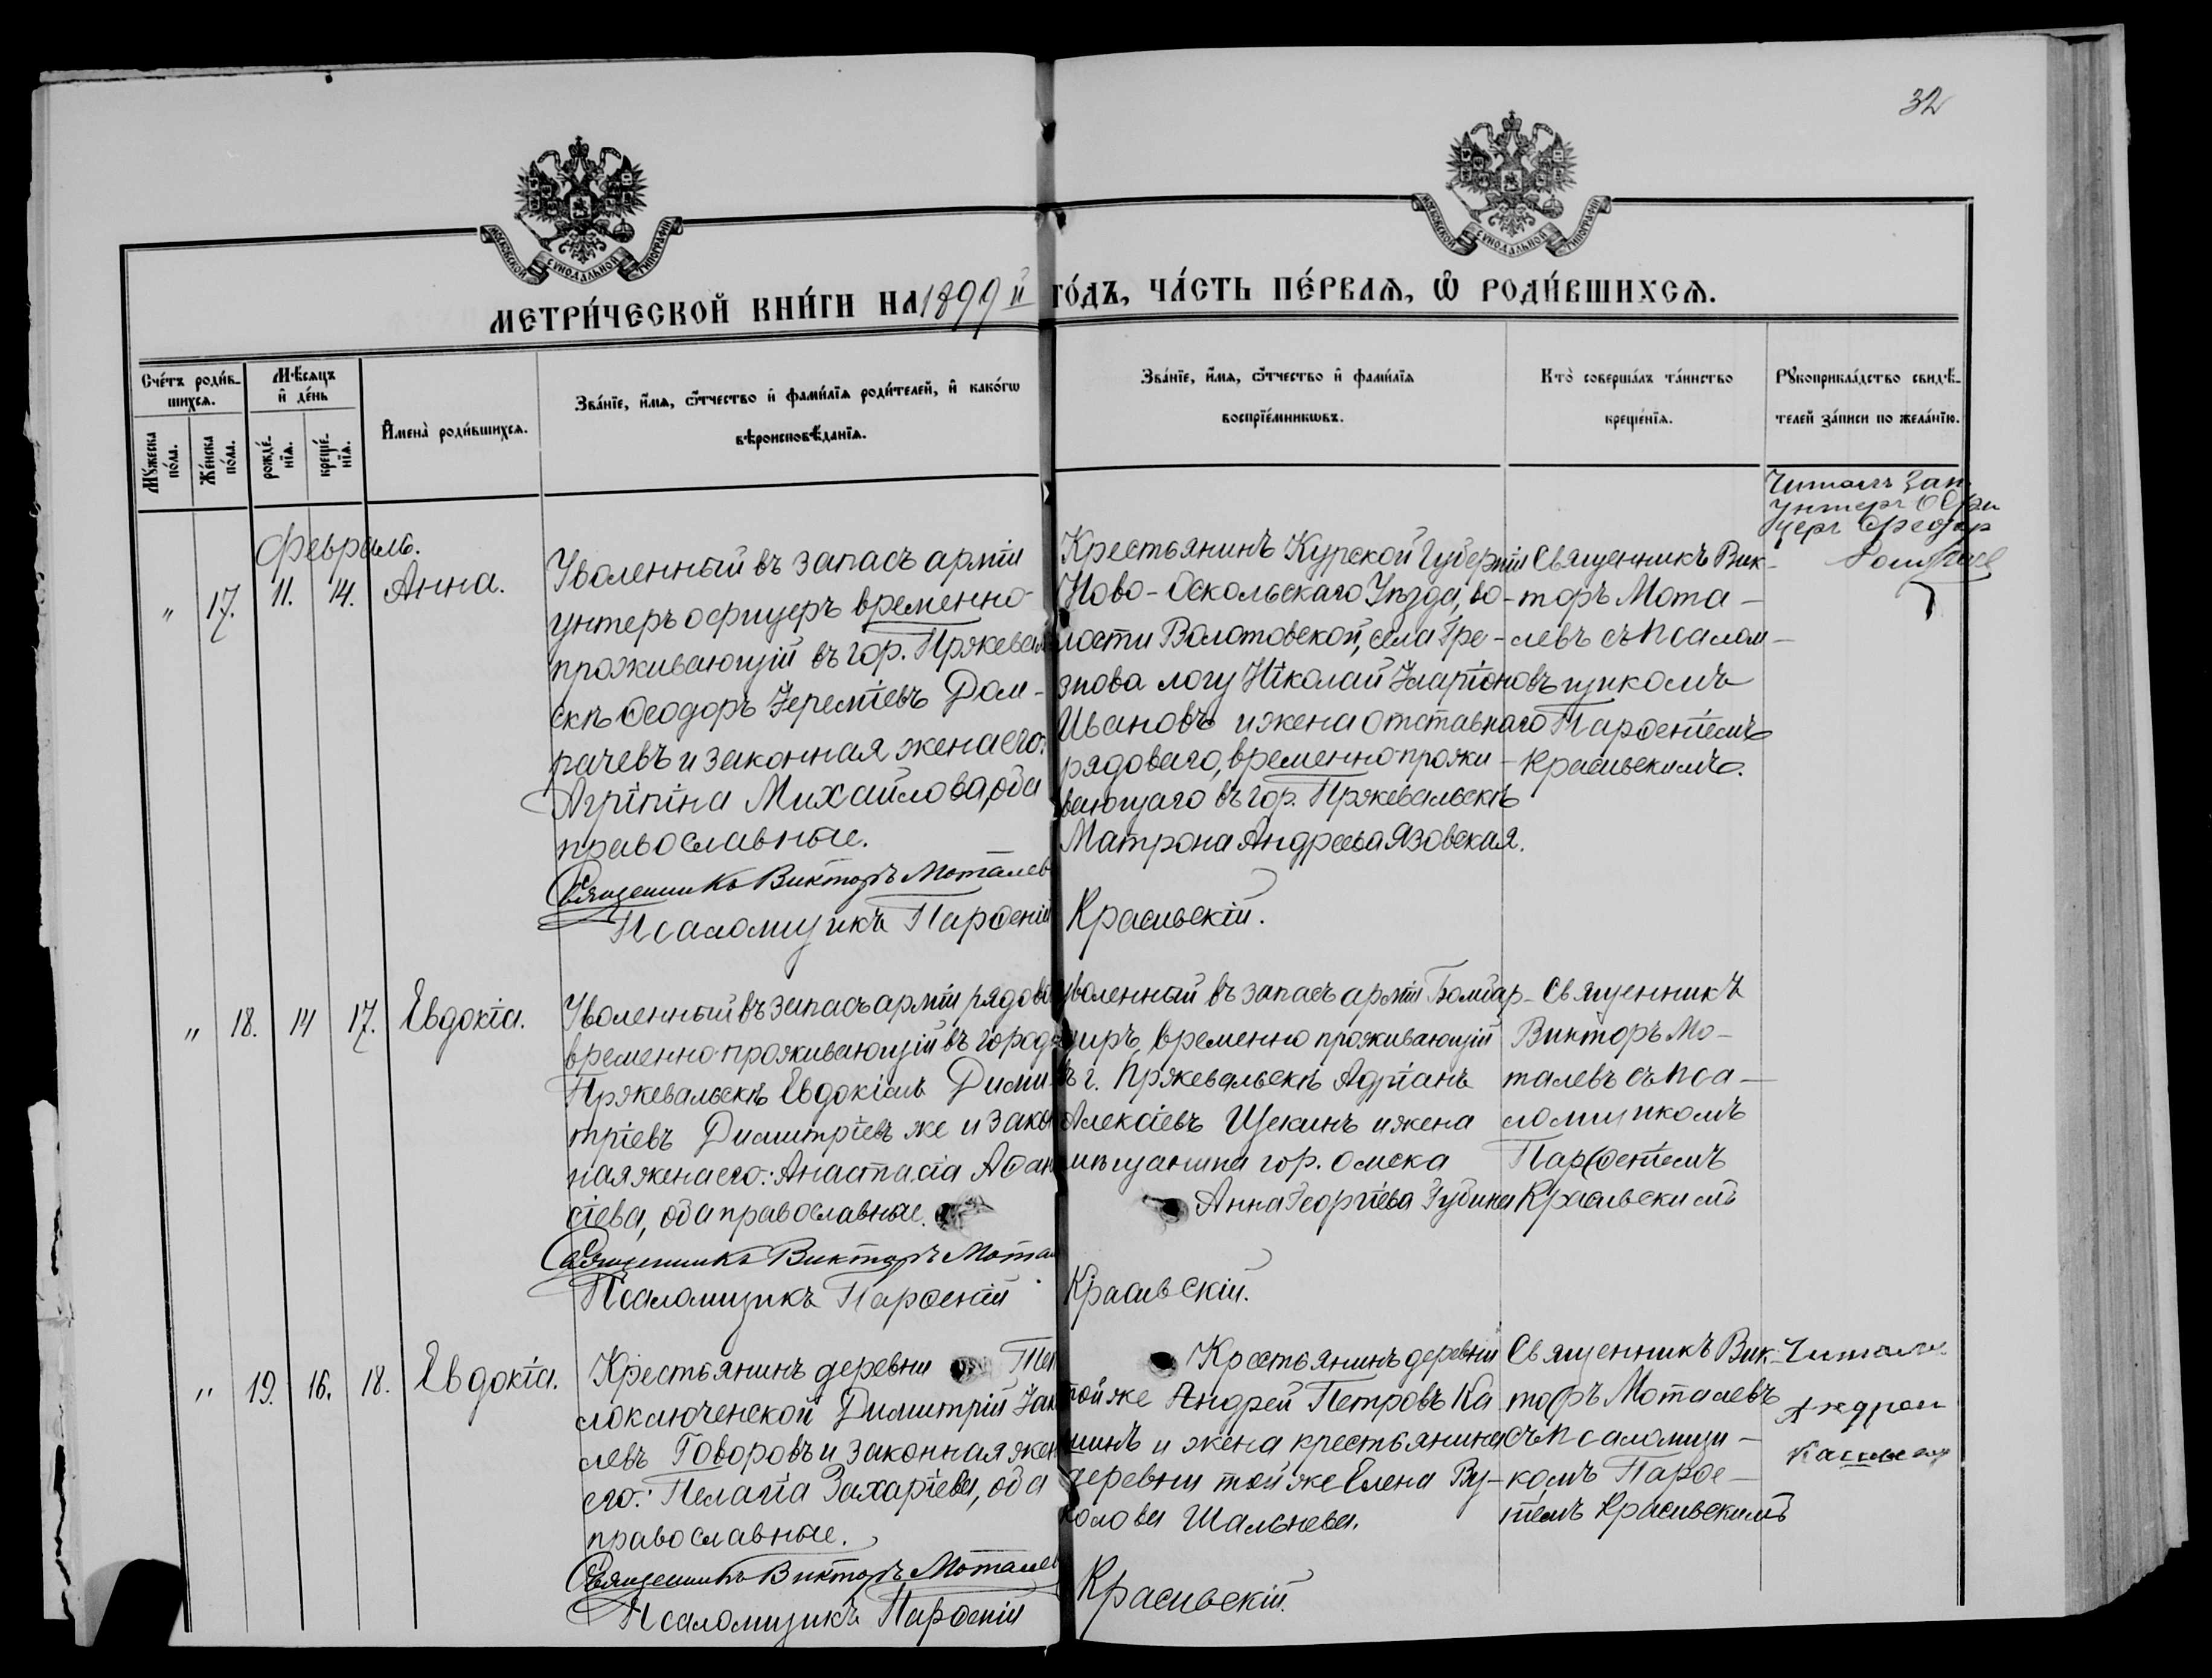 32
МОСКОВСКОЙ СѴНОДАЛЬНОЙ ТИПОГРАФІИ
МОСКОВСКОЙ СѴНОДАЛЬНОЙ ТИПОГРАФІИ
МЕТРИ́ЧЕСКОЙ КНИ́ГИ НА 1899й ГО́ДЪ, ЧА́СТЬ ПЕ́РВАѦ, Ѡ РОДИ́ВШИХСѦ.
Сче́тъ роди́в-
шихсѧ.
Мꙋ́жеска по́ла.
Же́нска по́ла.
Мѣ́сѧцъ
и де́нь
рожде́-нїѧ.
креще́-нїѧ.
Имена̀ роди́вшихсѧ.
Зва́нїе, и́мѧ, ѻ́тчество и фами́лїѧ роди́телей, и како́гѡ
вѣроисповѣ́данїѧ.
Зва́нїе, и́мѧ, ѻ́тчество и фами́лїѧ
воспрїе́мникѡвъ.
Кто̀ соверша́лъ та́инство
креще́нїѧ.
Рꙋкоприкла́дство свидѣ́-
телей за́писи по жела́нїю.
Февраль.
" 17. 11. 14. Анна.
Уволенный въ запасъ арміи
унтеръ офицеръ временно-
проживающій въ гор. Пржеваль
скѣ Ѳеодоръ Іереміевъ Дом-
рачевъ и законная жена его:
Агріпіна Михаилова, оба
православные.
Священникъ Викторъ Моталев
Псаломщикъ Парѳеній Красивскій.
Крестьянинъ Курской Губерніи
Ново-Оскольскаго Уѣзда, во-
лости Волотовской, села Гре-
знова логу Ніколай Иларіоновъ
Ивановъ и жена отставнаго
рядоваго, временно прожи-
вающаго въ гор. Пржевальскѣ
Матрона Андреева Язовская.
Священникъ Вик-
торъ Мота-
левъ съ псалом-
щикомъ
Парѳеніемъ
Красивскимъ.
Читалъ Зап
Унтеръ Офи
церъ Федор
" 18. 14 17. Евдокіа.
Уволенный въ запасъ арміи рядовой
временно проживающій въ городѣ
Пржевальскѣ Евдокімъ Дими-
тріевъ Димитріевъ же и закон
ная жена его: Анастасіа Аѳана
сіева, оба православные.
Священникъ Викторъ Мотал
Псаломщикъ Парѳеній Красивскій.
уволенный въ запасъ арміи Бомбар-
диръ, временно проживающій
въ г. Пржевальскѣ Адріанъ
Алексіевъ Щекинъ и жена
мѣщанина гор. Омска
Анна Георгіева Губина
Священникъ
Викторъ Мо-
талевъ съ пса-
ломщикомъ
Парѳеніемъ
Красивскимъ
" 19. 16. 18. Евдокіа.
Крестьянинъ деревни Теп
лоключенской Димитрій Іак
левъ Говоровъ и законная жен
его: Пелагіа Захаріева, оба
православные.
Священникъ Викторъ Моталев
Псаломщикъ Парѳеній Красивскій.
Крестьянинъ деревни
той же Андрей Петровъ Ка
шинъ и жена крестьянина
деревни той же Елена Ву-
колова Шальнева.
Священникъ Вик-
торъ Моталевъ
съ псаломщи-
комъ Парѳе-
ніемъ Красивскимъ
Читалъ
Андреи